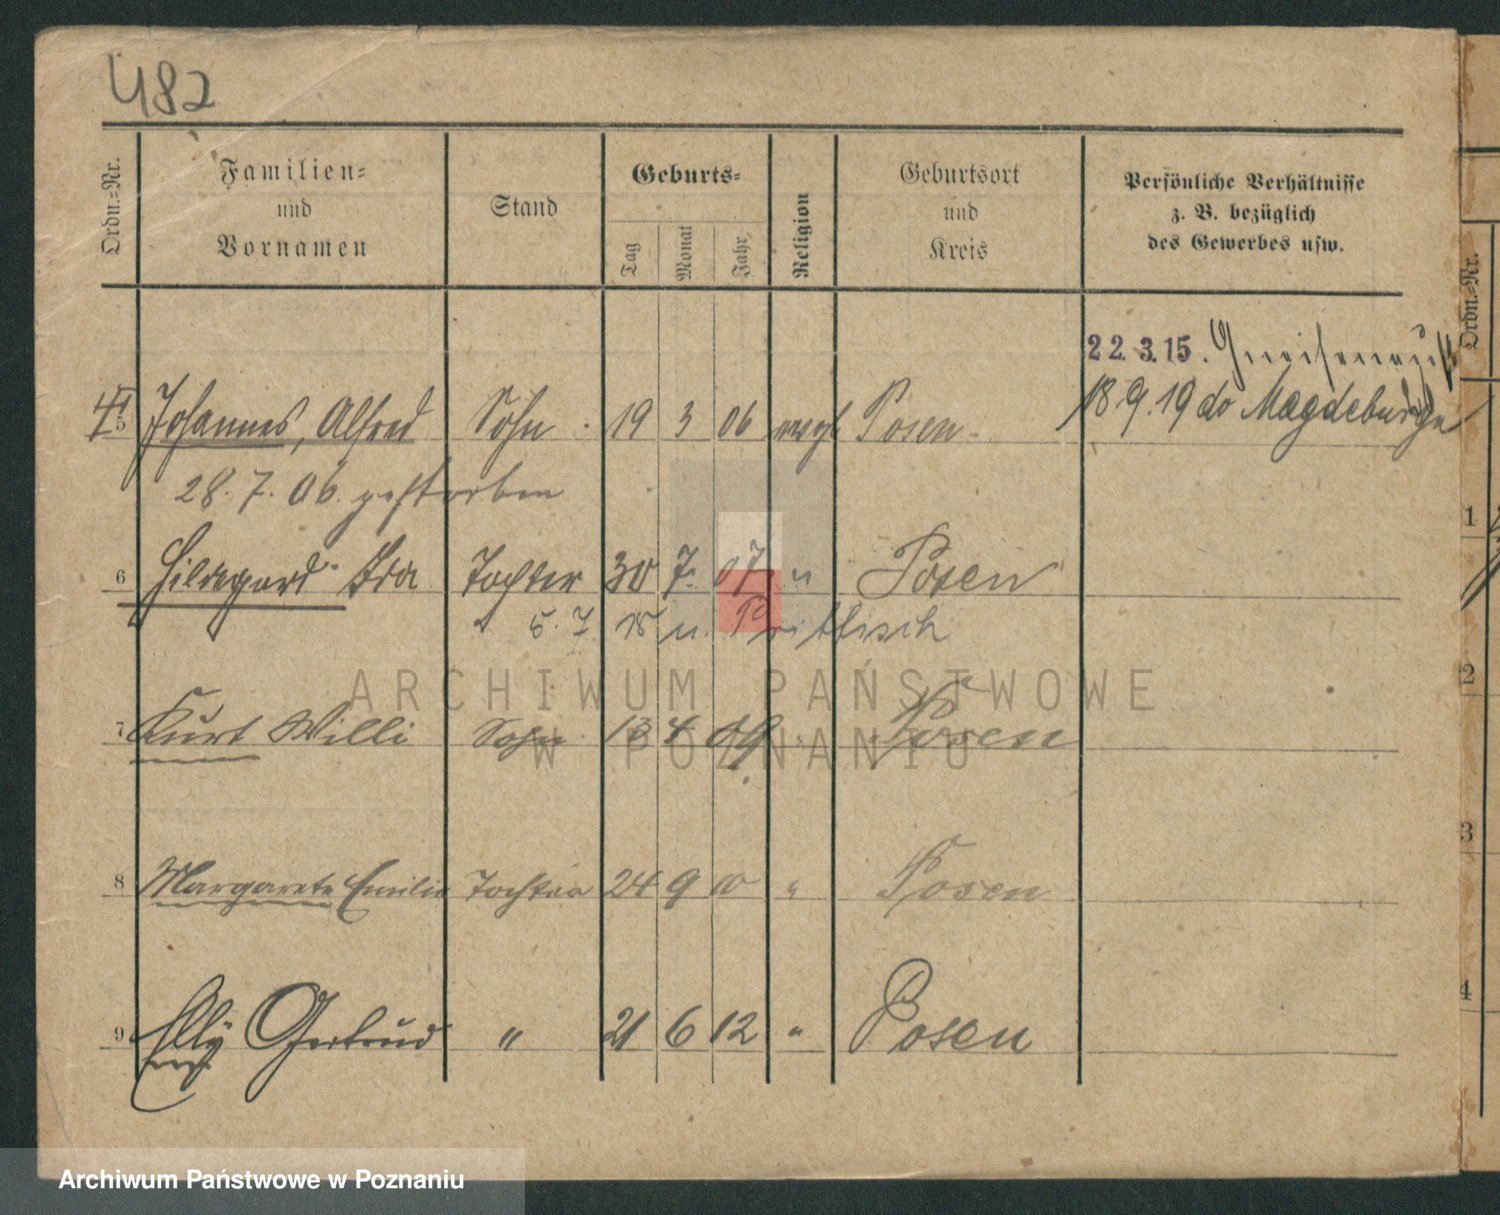 482
Ordn.=Nr.
Familien=
und
Vornamen
Stand
Geburts=
Tag
Monat
Jahr
Religion
Geburtsort
und
Kreis
Persönliche Verhältnisse
z. B. bezüglich
des Gewerbes usw.
Ordn.=Nr.
22.3.15. Gneisenaustr
18.9.19 do Magdeburg
5 Johannes, Alfred Sohn 19 3 06 evgl Posen
28. 7. 06. gestorben
6 Hildegard Tochter 30 7. 07. " Posen
5. 7. 15 n.
7 Kurt Willi Sohn 13 4 09 " Posen
8 Margarete Emilie Tochter 24 9 10 " Posen
9 Elly Gertrud " 21 6 12 " Posen
1
2
3
4
ARCHIWUM PAŃSTWOWE
W POZNANIU
Archiwum Państwowe w Poznaniu